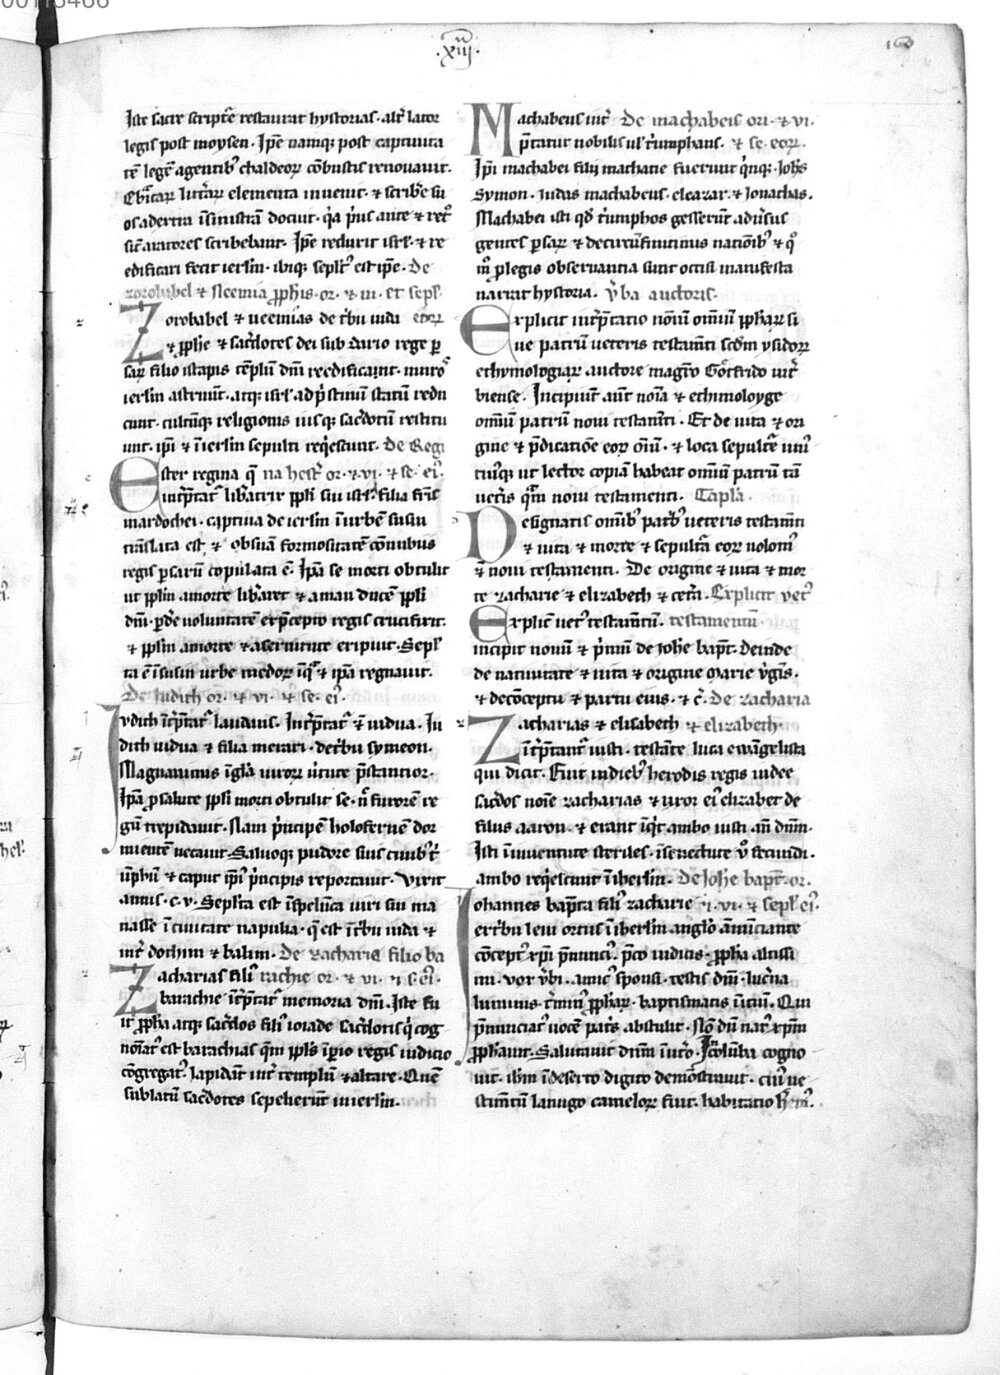 .xiij.
160
Iste sacre scripture restaurat hystorias. alter lator
legis post moysen. Ipe namq; post captiuita
tem legem a gentib; chaldeor combustis renouauit.
elementa inuenit. & scribere
os
sicut aratores scribebant. Ipe reduxit isrl. & re
edificari fecit ierlm. ibiq; sepult est ipe. De
zorobabel & Neemia pphis. or. & ui. et sepl.
Zorobabel & neemias de tribu iuda eorz
& pphe & sacerdotes dei sub dario rege per
sarz filio istapis templum dni reedificarunt. muros
ierlm astruunt. atq; isrl ad pristinum statum redu
cunt. cultumq; religionis iusq; sacerdotum restitu
unt. ipi & in ierlm sepulti reqiescunt. De Regi
Ester regina que na hester or. & ui. & se. ei.
interpretatur liberatrix ppli sui isrl. filia fris
mardochei. captiua de ierlm in urbem susim
translata est, & ob suam formositatem
regis persarum copulata e. Ipa se morti obtulit
ut pplm a morte liberaret & aman ducem ppli
dni. perdere uoluntatem ex precepto regis crucifixit.
& pplm a morte & a seruitute eripuit. Sepl
ta e in susim urbe medorz in q & ipa regnauit.
De Iudith or. & vi. & se. ei.
Iudith interpretatur laudans. Interpretatur & uidua. Iu
dith uidua & filia merari. de tribu symeon.
Magnanimis in gla uirorz uirtute prestantior.
Ipa p salute ppli morti obtulit se. n furorem re
gum trepidauit. Nam principem holofernem dor
mientem necauit. Saluoq; pudore suis ciuib; tri
umphum & caput ipi principis reportauit. Vixit
annis. c. v. Sepulta est in spelunca uiri sui ma
nasse in ciuitate napulia. que est in tribu iuda &
inter dochim & balim. De zacharia filio ba
Zacharias filius rachie or. & vi. & s. ei.
barachie interpretatur memoria dni. Iste fu
it ppha atq; sacerdos filius ioiade sacerdotis qi cog
nominatus est barachias quem ppls imperio regis iudicio
congregatus lapidauit inter templum & altare. Quem
sublatum sacerdotes sepelierunt in ierlm.
Machabeus inter De machabeis ori. & vi.
pretatur nobilis uel triumphans. & se. eorz.
Ipi machabei filii machatie fuerunt qinq;. Iohs
Symon. Iudas machabeus. eleazar. & Ionathas.
Machabei isti qd triumphos gesserunt aduersus
gentes persarz & de circumfinitimis nationib; & qo
m p legis obseruantia sunt occisi manifesta
narrat hystoria. Verba auctoris.
Explicit interpretatio nominum omnium ppharz si
ue patrum ueteris testamenti scdm ysidorz
ethymologiarz auctore magistro Gotfrido uiter
biense. Incipiunt autem nomina & ethimoloyge
omnium patrum noui testamenti. Et de uita & ori
gine & predicatione eorz omnium. & loca sepulture uni
cuiq; ut lector copiam habeat omnium patrum tam
ueteris quam noui testamenti. Capla.
Designatis omnib; patrib; ueteris testamenti
& uita & morte & sepultura eorz nolom
& noui testamenti. De origine & uita & mor
te zacharie & elizabeth & cetera. Explicit vet
Explicit uetus testamentum. testamentum
incipit nouum & primum de Iohe bapt. Deinde
de natiuitate & uita & origine Marie uirginis.
& de conceptu & partu eius. & c. De zacharia
Zacharias & elisabeth & elizabeth.
interpretantur iusti. testante luca ewangelista
qui dicit. Fuit in dieb; herodis regis iudee
sacerdos nomine zacharias & uxor ei elizabet de
filiis aaron. & erant inqit ambo iusti ante dnm.
Isti in iuuentute steriles. in senectute uero fecundi.
ambo reqiescunt in iherlm. De Iohe bapt. or.
Iohannes baptista filius zacharie & vi. & sepl ei.
ex tribu leui ortus in iherlm anglo annunciante
conceptus. xpi prenuncius. preco iudicis. ppha altissi
mi. vox verbi. amicus sponsi. testis dni. lucerna
luminis. terminus ppharz. baptismatis initium. Qui
prenunciatus uocem patris abstulit. Non dum natus xpm
pphauit. Salutauit dnm in utero. In columba cogno
uit. ihm in deserto digito demonstrauit. cuius ue
stimentum lanugo camelorz fuit. habitatio heremus.